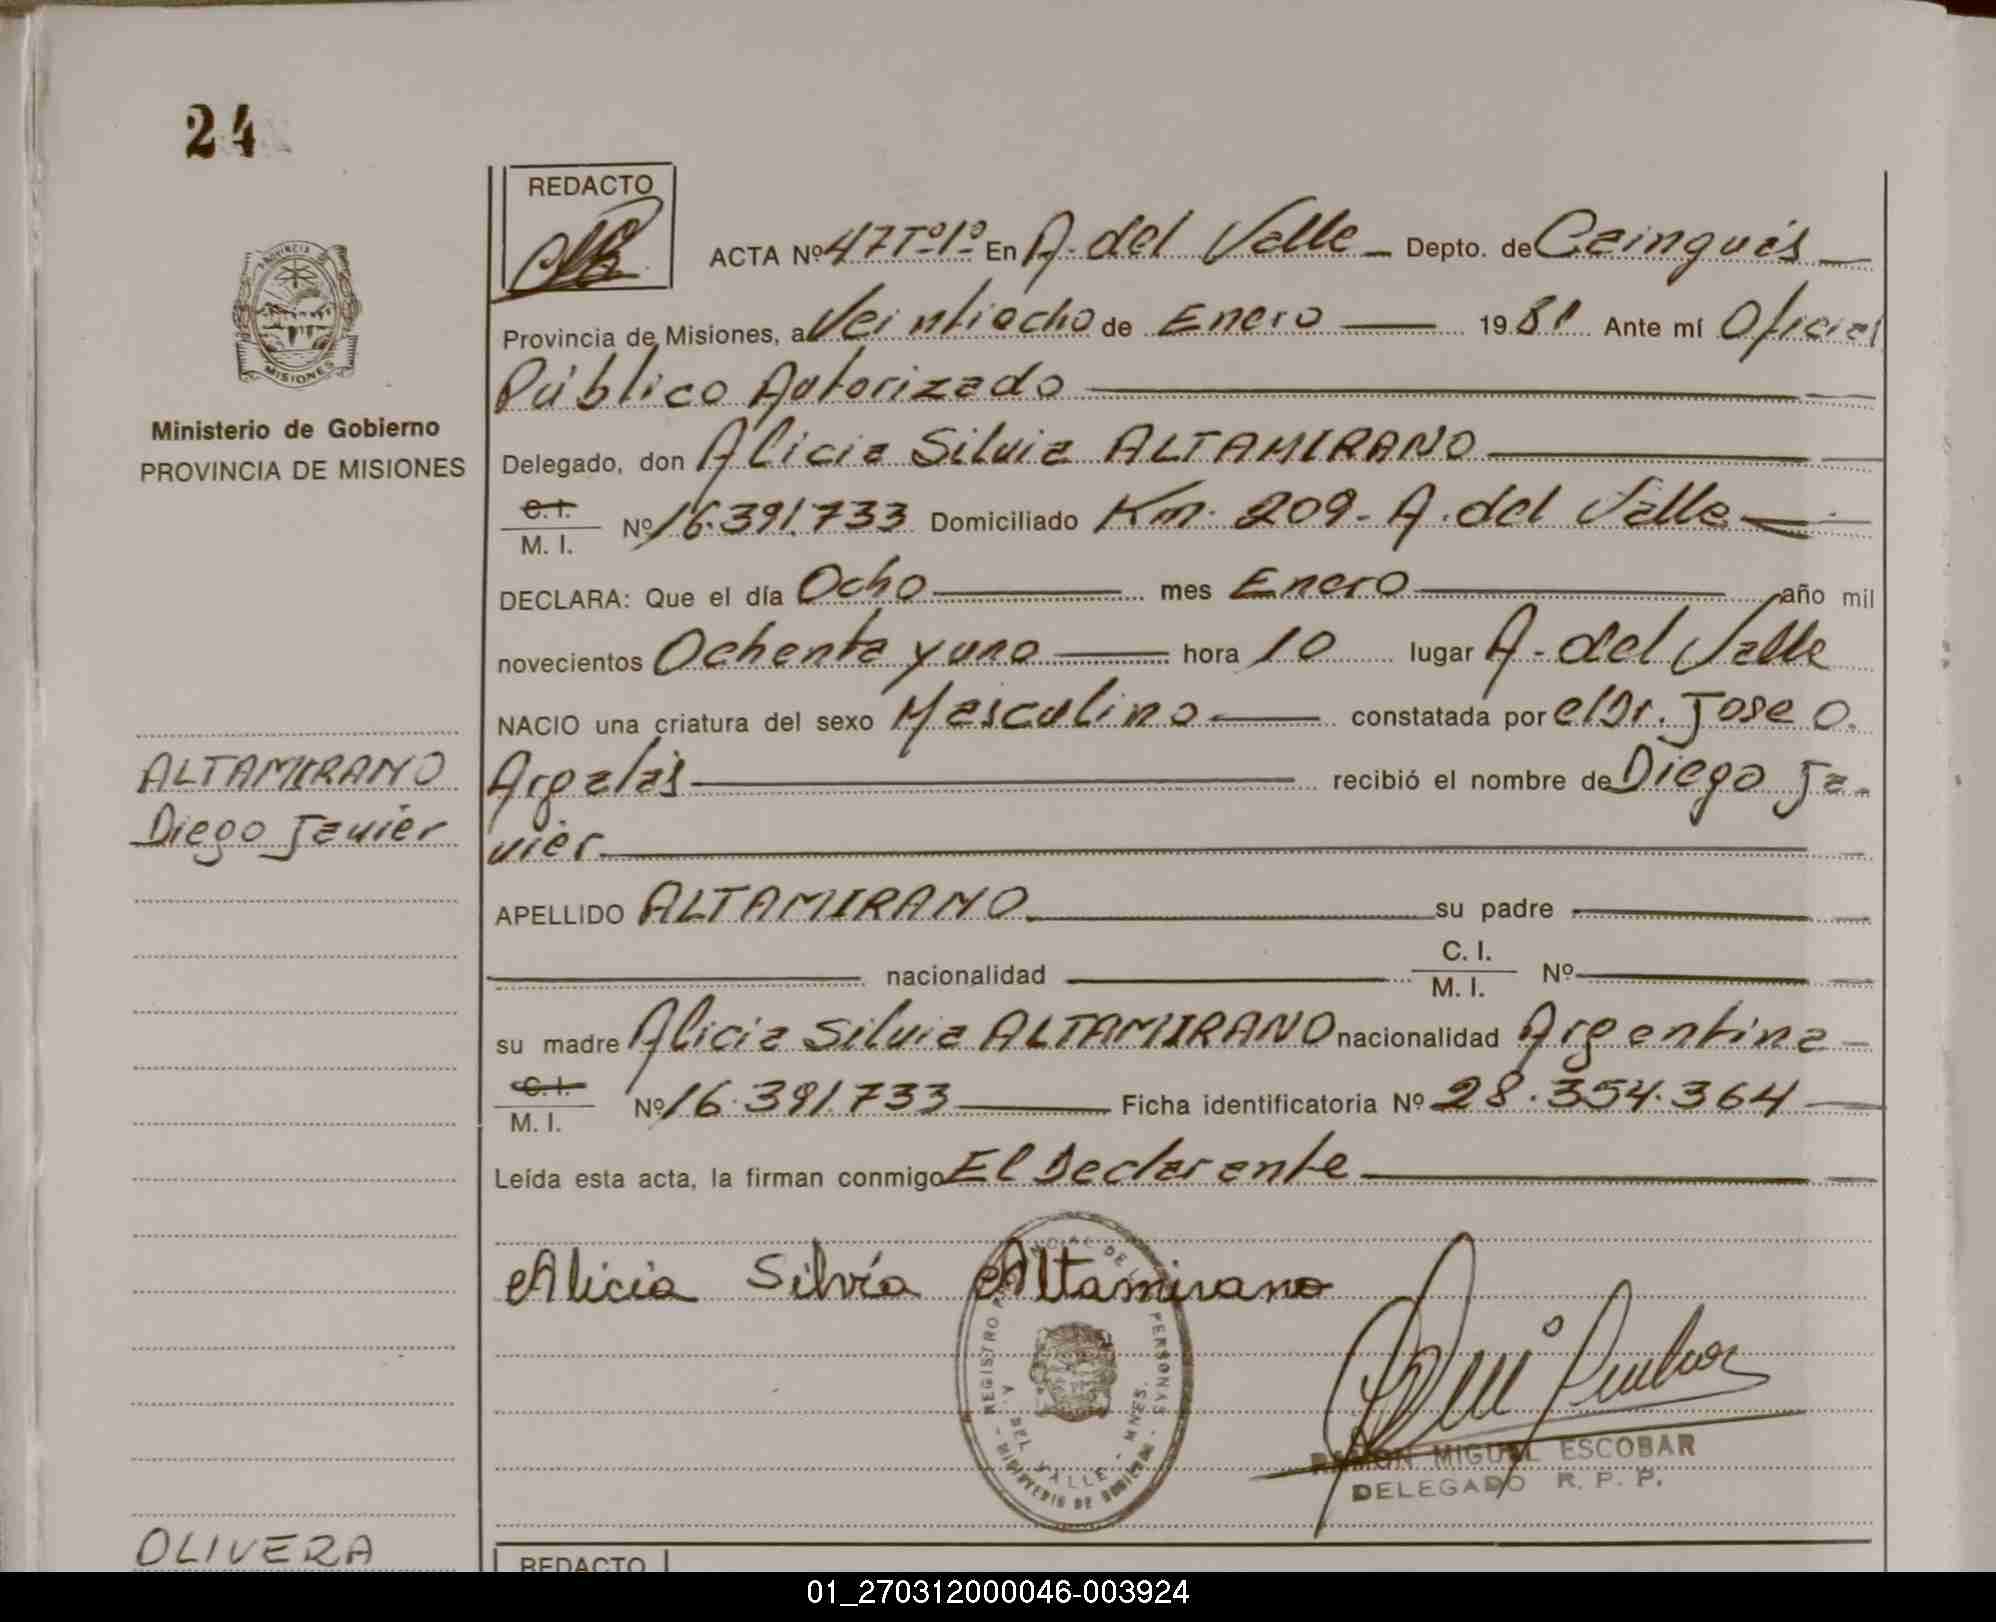 24
REDACTO
ACTA Nº 47 Tº 1º En A. del Valle Depto. de Cainguás
Provincia de Misiones, a Veintiocho de Enero 19 81 Ante mí Oficial
Público Autorizado
Delegado, don Alicia Silvia ALTAMIRANO
C.I. M. I. Nº 16.391.733 Domiciliado Km. 209 - A. del Valle
DECLARA: Que el día Ocho mes Enero año mil
novecientos Ochenta y uno hora 10 lugar A. del Valle
NACIO una criatura del sexo Masculino constatada por el Dr. Jose O.
recibió el nombre de Diego Ja-
vier
APELLIDO ALTAMIRANO su padre
nacionalidad C. I. M. I. Nº
su madre Alicia Silvia ALTAMIRANO nacionalidad Argentina
C.I. M. I. Nº 16.391.733 Ficha identificatoria Nº 28.354.364
Leída esta acta, la firman conmigo El Declarante
Alicia Silvia Altamirano
REGISTRO PROVINCIAL DE LAS PERSONAS
A. DEL VALLE - MNES.
MINISTERIO DE GOBIERNO
RAMON MIGUEL ESCOBAR
DELEGADO R. P. P.
PROVINCIA
MISIONES
Ministerio de Gobierno
PROVINCIA DE MISIONES
ALTAMIRANO
Diego Javier
OLIVERA
REDACTO
01_270312000046-003924